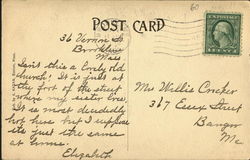 60
POST CARD
36 Vernon St
Brookline
Mass
Isn't this a lovely old
church? It is just at
the foot of the street
where my sister lives.
It is most decidedly
hot here but I suppose
it's just the same
at home.
Elizabeth
Mrs Willis Corker
367 Essex Street
Bangor
Me